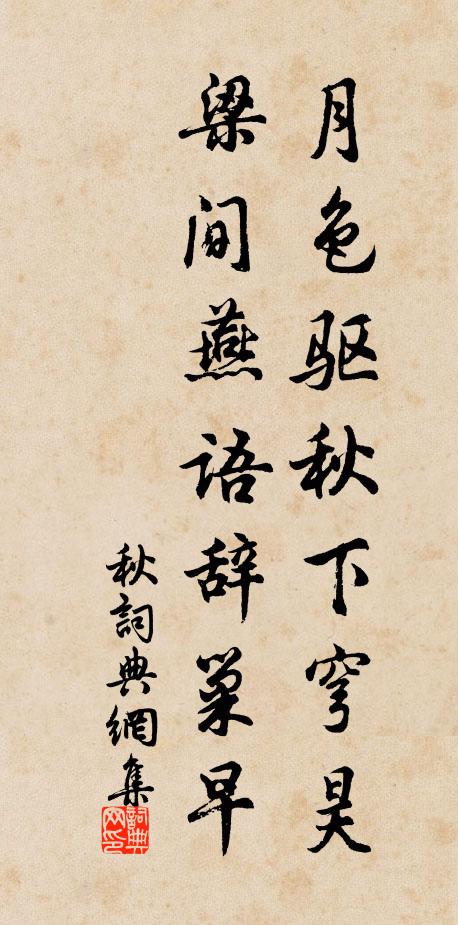 月色驱秋下穹昊
梁间燕语辞巢早
秋詞典網集
詞典网印